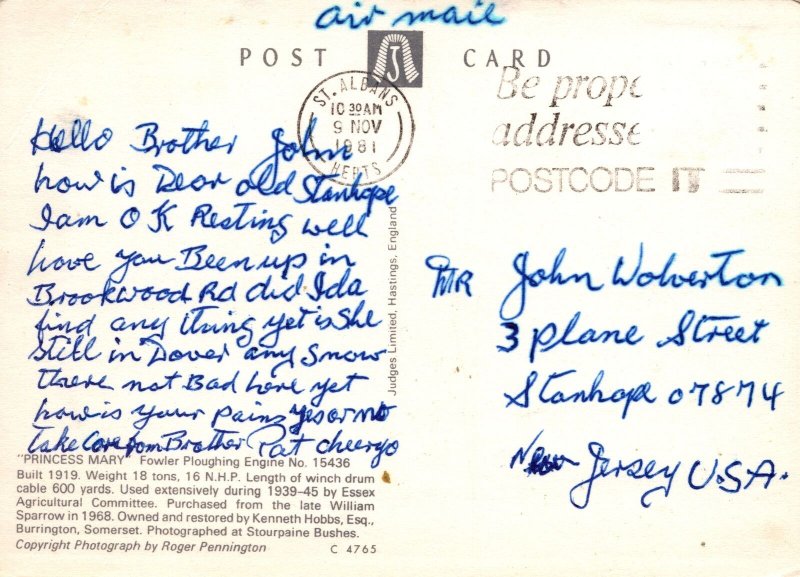 air mail
POST CARD
J
ST. ALBANS
10 30 AM
9 NOV
1981
HERTS
Be prope
addresse
POSTCODE IT
Hello Brother John
how is Dear old Stanhope
I am O K Resting well
have you Been up in
Brookwood Rd did Ida
find any thing yet is She
Still in Dover any Snow
there not Bad here yet
how is your pains yes or no
take care from Brother Pat cheeryo
Judges Limited, Hastings, England
MR John Wolverton
3 plane Street
Stanhope 07874
New Jersey U.S.A.
"PRINCESS MARY" Fowler Ploughing Engine No. 15436
Built 1919. Weight 18 tons, 16 N.H.P. Length of winch drum
cable 600 yards. Used extensively during 1939-45 by Essex
Agricultural Committee. Purchased from the late William
Sparrow in 1968. Owned and restored by Kenneth Hobbs, Esq.,
Burrington, Somerset. Photographed at Stourpaine Bushes.
Copyright Photograph by Roger Pennington C 4765